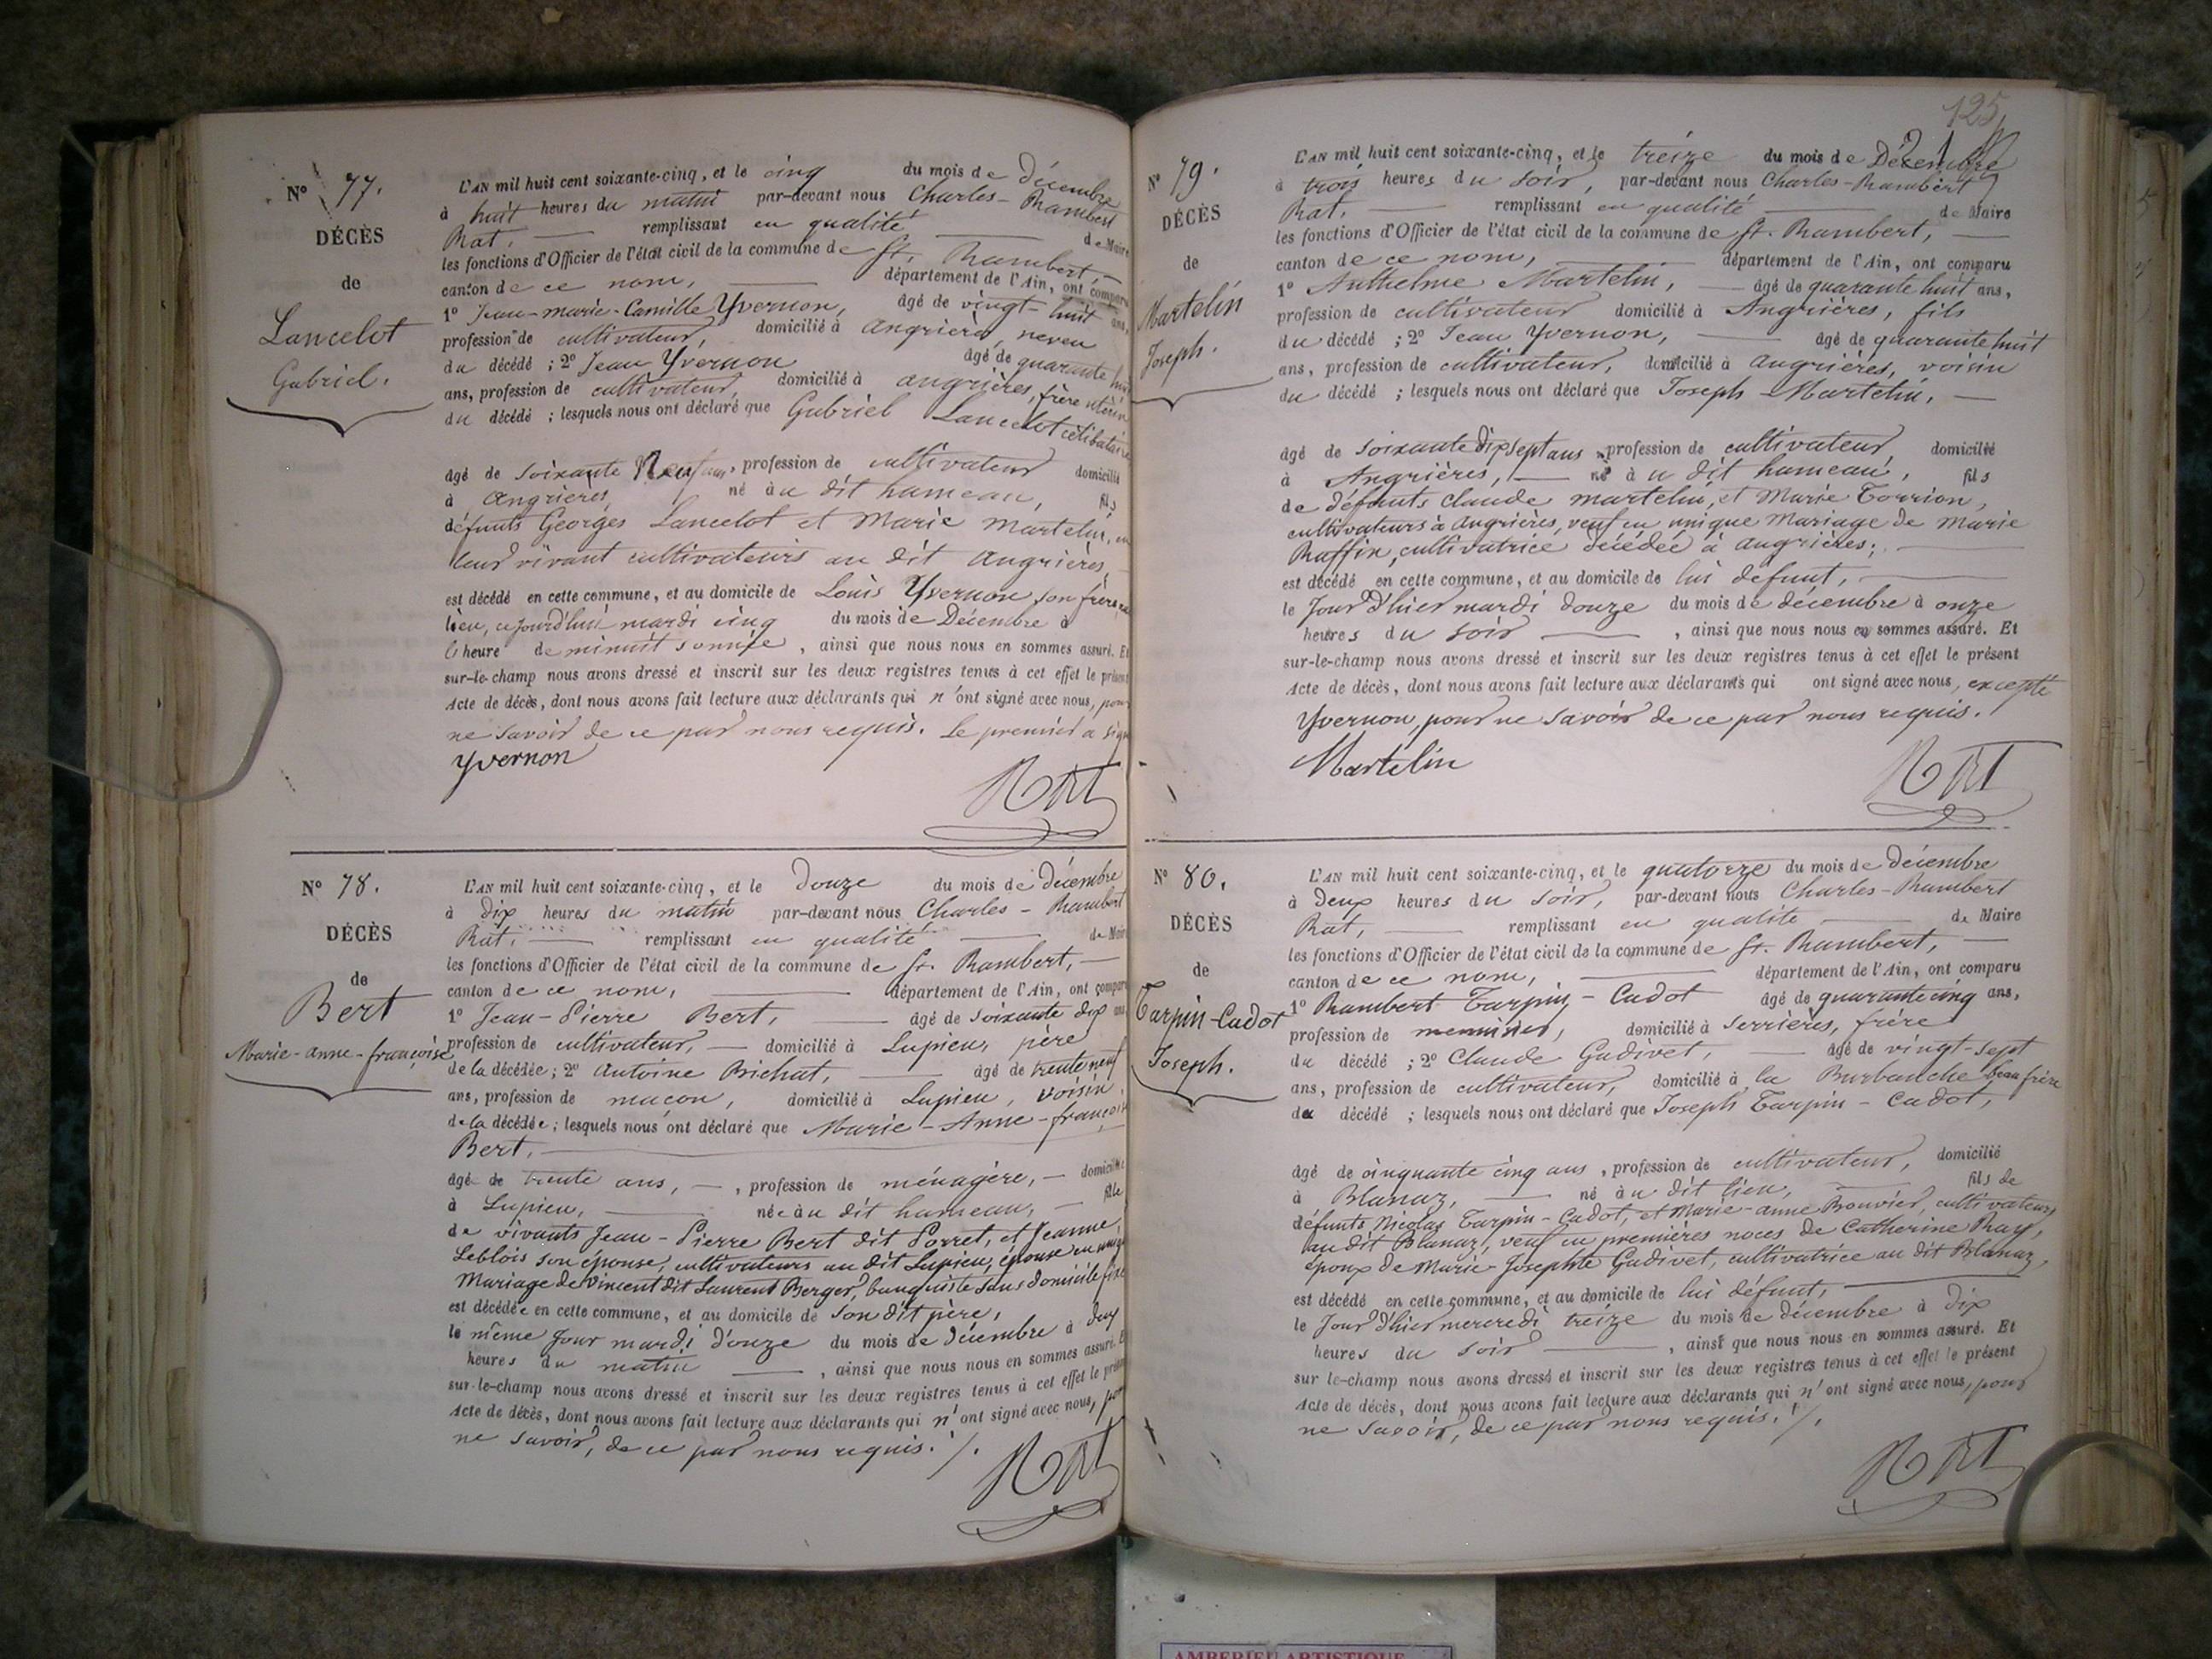 N° 77.
DÉCÈS
de
Lancelot
Gabriel.
L'AN mil huit cent soixante-cinq, et le cinq du mois de Décembre
à huit heures du matin par-devant nous Charles-Rambert
Rat. — remplissant en qualité — de Maire
les fonctions d'Officier de l'état civil de la commune de St. Rambert, —
canton de ce nom, — département de l'Ain, ont comparu
1° Jean-marie-Camille Yvernon, âgé de vingt-huit ans,
profession de cultivateur, domicilié à Angrièrès, neveu
du décédé ; 2° Jean Yvernon âgé de quarante huit
ans, profession de cultivateur, domicilié à angrières, frère utérin
du décédé ; lesquels nous ont déclaré que Gabriel Lancelot célibataire
âgé de soixante Neuf ans, profession de cultivateur domicilié
à Angrières, né àu dit hameau, fils
défunts Georges Lancelot et Marie Martelin, en
leur vivant cultivateurs au dit Angrières, —
est décédé en cette commune, et au domicile de Louis Yvernon son frère,
lieu, cejourd'hui mardi cinq du mois de Décembre à
l'heure de minuit sonnée, ainsi que nous nous en sommes assuré. Et
sur-le-champ nous avons dressé et inscrit sur les deux registres tenus à cet effet le présent
Acte de décès, dont nous avons fait lecture aux déclarants qui n'ont signé avec nous, pour
ne savoir de ce par nous requis. Le premier a signé
Yvernon
Rat
N° 78.
DÉCÈS
de
Bert
Marie-anne-françoise
L'AN mil huit cent soixante-cinq, et le douze du mois de décembre
à dix heures du matin par-devant nous Charles-Rambert
Rat. — remplissant en qualité — de Maire
les fonctions d'Officier de l'état civil de la commune de St. Rambert, —
canton de ce nom, — département de l'Ain, ont comparu
1° Jean-Pierre Bert, — âgé de soixante dix ans
profession de cultivateur, — domicilié à Lupieu, père
de la décédée ; 2° Antoine Brichat, — âgé de trente neuf
ans, profession de maçon, domicilié à Lupieu, voisin
de la décédée ; lesquels nous ont déclaré que Marie-Anne-françoise
Bert, —
âgé de trente ans, —, profession de ménagère, — domiciliée
à Lupieu, — née àu dit hameau, — fille
de vivants Jean-Pierre Bert dit Porret, et Jeanne
Leblois son épouse, cultivateurs au dit Lupieu, épouse en unique
Mariage de Vincent dit Laurent Berger, banquiste sans domicile fixe
est décédée en cette commune, et au domicile de son dit père,
le même jour mardi douze du mois de décembre à deux
heures du matin —, ainsi que nous nous en sommes assuré. Et
sur-le-champ nous avons dressé et inscrit sur les deux registres tenus à cet effet le présent
Acte de décès, dont nous avons fait lecture aux déclarants qui n'ont signé avec nous, pour
ne savoir, de ce par nous requis. /.
Rat
125
N° 79.
DÉCÈS
de
Martelin
Joseph.
L'AN mil huit cent soixante-cinq, et le treize du mois de Décembre
à trois heures du soir, par-devant nous Charles-Rambert
Rat. — remplissant en qualité — de Maire
les fonctions d'Officier de l'état civil de la commune de St. Rambert, —
canton de ce nom, — département de l'Ain, ont comparu
1° Anthelme Martelin, — âgé de quarante huit ans,
profession de cultivateur domicilié à Angrières, fils
du décédé ; 2° Jean Yvernon, — âgé de quarante huit
ans, profession de cultivateur, domicilié à Angrières, voisin
du décédé ; lesquels nous ont déclaré que Joseph Martelin, —
âgé de soixante dix sept ans, profession de cultivateur, domicilié
à Angrières, — né àu dit hameau, fils
de défunts Claude martelin, et Marie Torrion,
cultivateurs à Angrières, veuf en unique Mariage de Marie
Ruffin, cultivatrice décédée à Angrières; —
est décédé en cette commune, et au domicile de lui défunt, —
le Jour d'hier mardi douze du mois de décembre à onze
heures du soir —, ainsi que nous nous en sommes assuré. Et
sur-le-champ nous avons dressé et inscrit sur les deux registres tenus à cet effet le présent
Acte de décès, dont nous avons fait lecture aux déclarants qui ont signé avec nous, excepté
Yvernon, pour ne savoir de ce par nous requis.
Martelin
Rat
N° 80.
DÉCÈS
de
Tarpin-Cadot
Joseph.
L'AN mil huit cent soixante-cinq, et le quatorze du mois de décembre
à deux heures du soir, par-devant nous Charles-Rambert
Rat, — remplissant en qualité — de Maire
les fonctions d'Officier de l'état civil de la commune de St. Rambert, —
canton de ce nom, — département de l'Ain, ont comparu
1° Rambert Tarpin-Cadot âgé de quarante cinq ans,
profession de menuisier, domicilié à Serrières, frère
du décédé ; 2° Claude Gudivet, — âgé de vingt-sept
ans, profession de cultivateur, domicilié à la Burbanche beau frère
du décédé ; lesquels nous ont déclaré que Joseph Tarpin-Cadot,
âgé de cinquante cinq ans, profession de cultivateur, domicilié
à Blanaz, — né àu dit lieu, — fils de
défunts Nicolas Tarpin-Cadot, et Marie-anne Bouvier, cultivateurs
au dit Blanaz, veuf en premières noces de Catherine Ray,
époux de Marie Josephte Gudivet, cultivatrice au dit Blanaz,
est décédé en cette commune, et au domicile de lui défunt, —
le Jour d'hier mercredi treize du mois de décembre à dix
heures du soir —, ainsi que nous nous en sommes assuré. Et
sur le-champ nous avons dressé et inscrit sur les deux registres tenus à cet effet le présent
Acte de décès, dont nous avons fait lecture aux déclarants qui n'ont signé avec nous, pour
ne savoir, de ce par nous requis. /.
Rat
AMBERIEU ARTISTIQUE